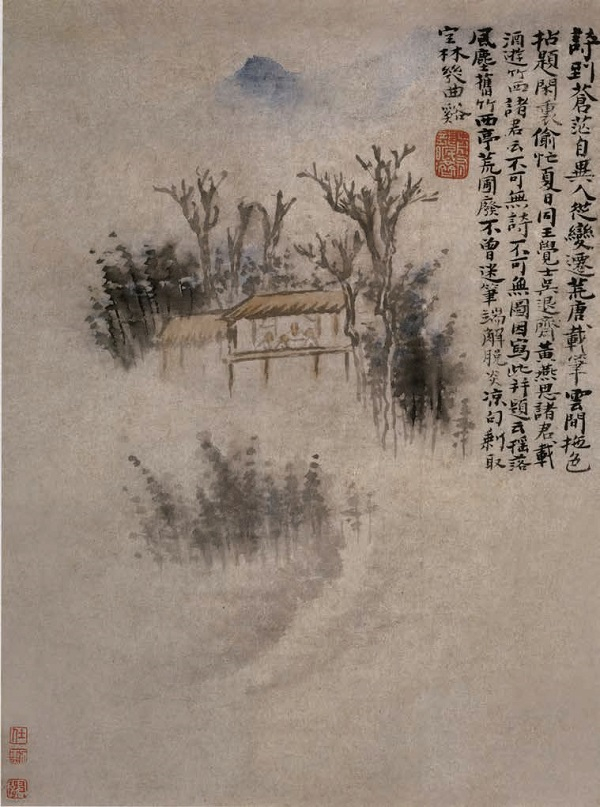 詩到蒼茫自異人變遷荒唐載筆雲間拖色
拈題閑裏偷忙夏日同王覺士吳退齋黃燕思諸君載
酒遊竹西諸君云不可無詩不可無圖因寫此并題云搖落
風塵舊竹西亭荒圃廢不曾迷筆端解脫炎涼句剩取
空林幾曲谿